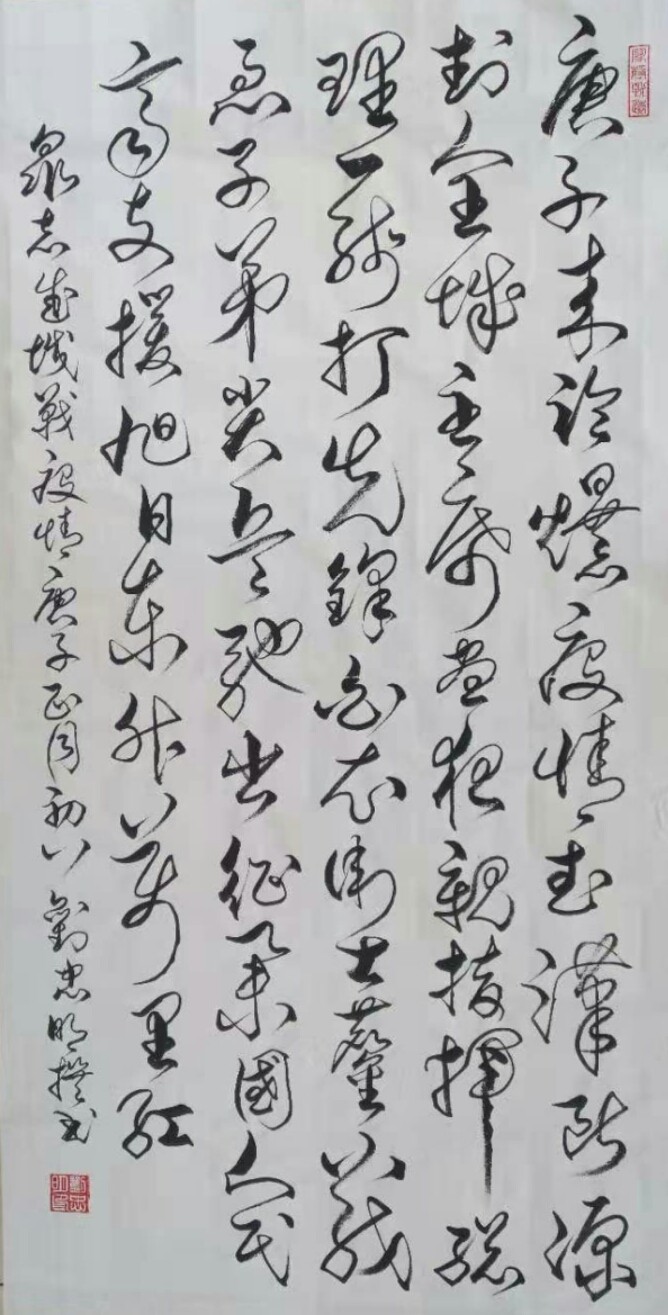 庚子来临爆疫情武漢断源
封全城主席昼夜親指揮總
理一線打先鋒白衣衛士戰
子弟尖兵驰出征舉國人民
齊支援旭日東升萬里紅
眾志成城戰疫情庚子正月初八劉忠明撰书